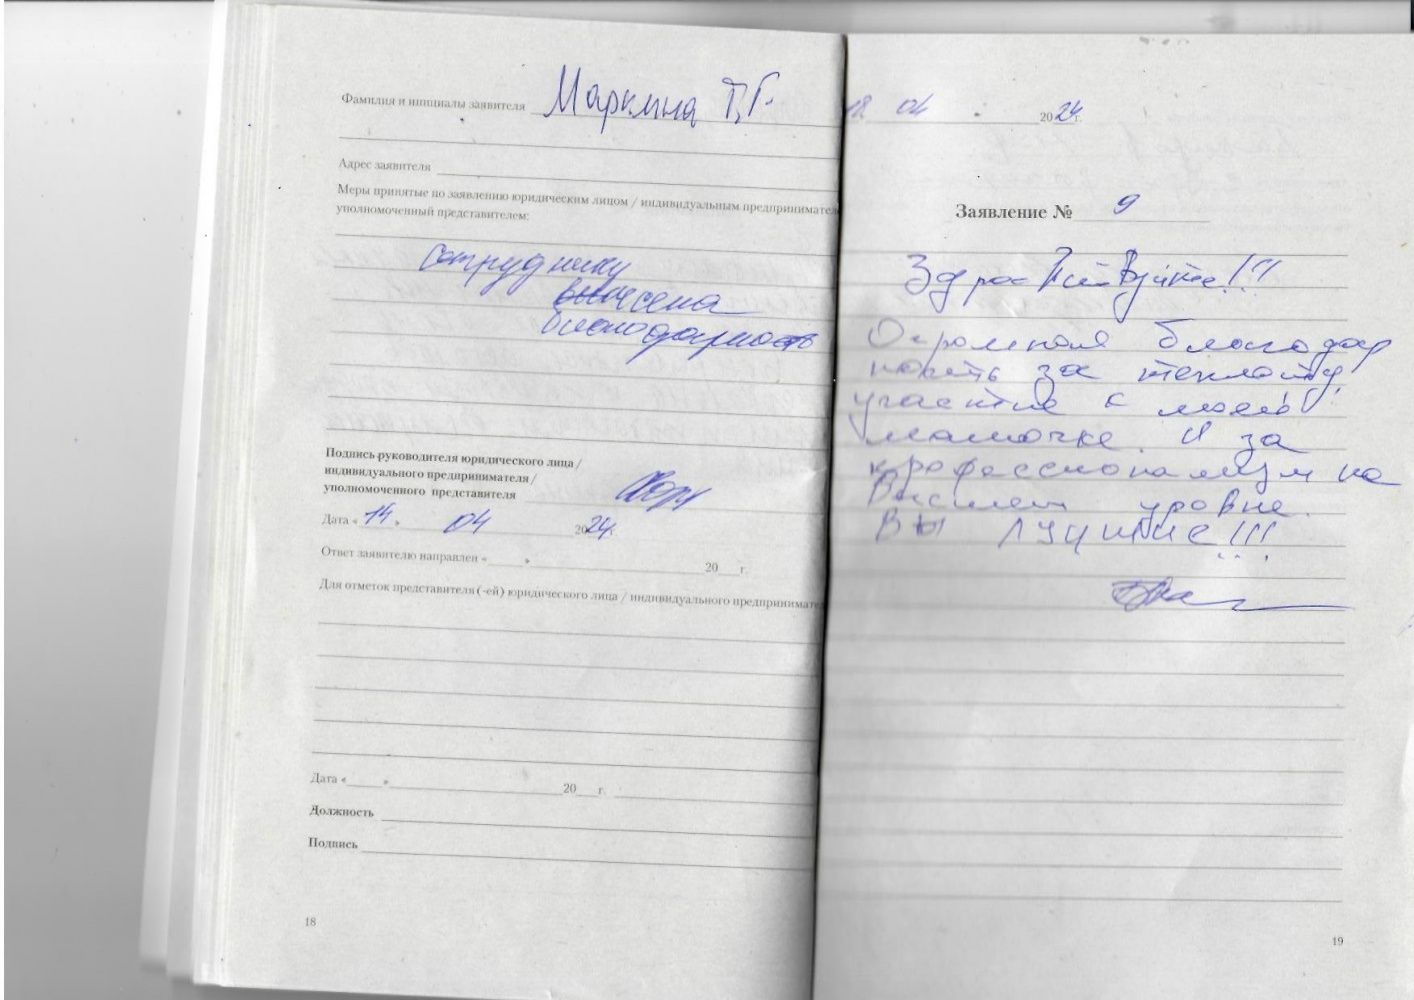 Фамилия и инициалы заявителя Маркина Т.Г.
Адрес заявителя
Меры принятые по заявлению юридическим лицом / индивидуальным предпринимател
уполномоченный представителем:
сотруднику
вынесена
благодарность
Подпись руководителя юридического лица /
индивидуального предпринимателя /
уполномоченного представителя
Дата « 14 » 04 2024.
Ответ заявителю направлен « » 20 г.
Для отметок представителя (-ей) юридического лица / индивидуального предпринимател
Дата « » 20 г.
Должность
Подпись
18
18 04 2024г.
Заявление № 9
Здравствуйте!!!
Огромная благодар
ность за теплоту,
участие к моей
мамочке. И за
профессионализм на
Высшем уровне.
Вы ЛУЧШИЕ!!!
19